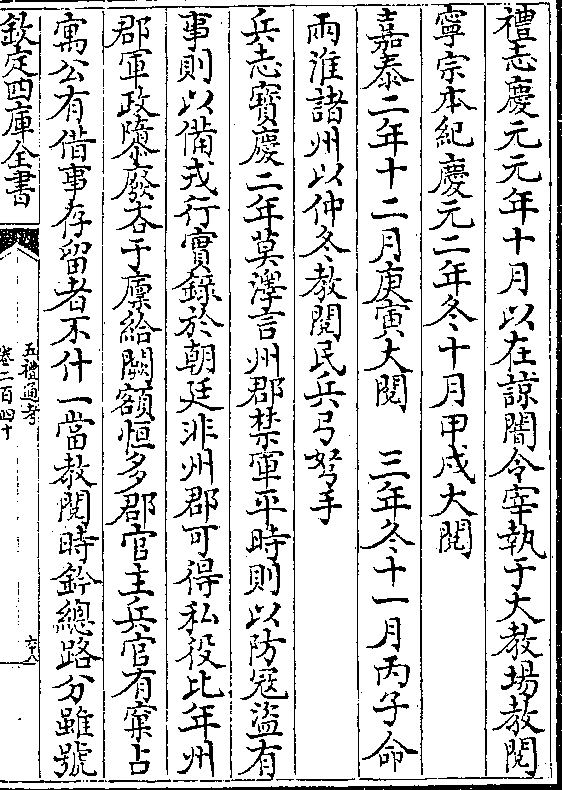 禮志慶元元年十月以在諒闇令宰執于大教場教閱
寧宗本紀慶元二年冬十月甲戌大閱
嘉泰二年十二月庚寅大閱　三年冬十一月丙子命
兩淮諸州以仲冬教閱民兵弓弩手
兵志寶慶二年莫澤言州郡禁軍平時則以防寇盜有
事則以備戎行實錄於朝廷非州郡可得私役比年州
郡軍政隳廢吝于廪給闕額恒多郡官主兵官有窠占
寓公有借事存留者不什一當教閱時鈐總路分雖號
欽定四庫全書
五禮通考
卷二百四十
六十八